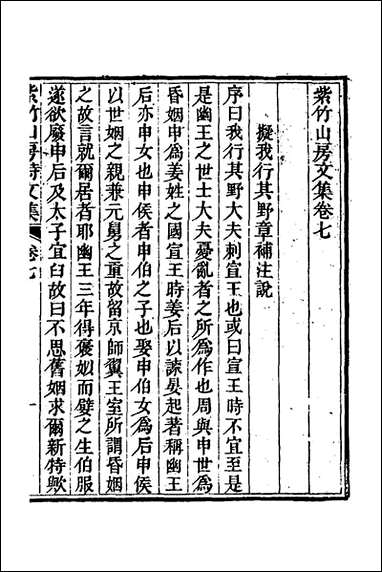 紫竹山房文集卷七
擬我行其野章補注說
序曰我行其野大夫刺宣王也或曰宣王時不宜至是
是幽王之世士大夫憂亂者之所為作也周與申世為
昏姻申為姜姓之國宣王時姜后以諫晏起著稱幽王
后亦申女也申侯者申伯之子也娶申伯女為后申侯
以世姻之親兼元舅之重故留京師翼王室所謂昏姻
之故言就爾居者耶幽王三年得褒姒而嬖之生伯服
遂欲廢申后及太子宜臼故曰不思舊姻求爾新特歟
紫竹山房詩文集
卷七
一